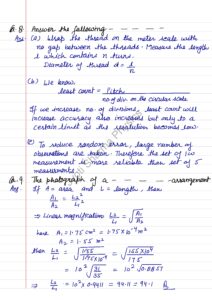 Q.8. Answer the following - - - -
Ans: (a) Wrap the thread on the meter scale with
no gap between the threads. Measure the length
l which contains n turns.
Diameter of thread d = l/n
(b) We know.
least count = Pitch / no of div. on the circular scale
If we increase no. of divisions, least count will
increase accuracy also increases but only to a
certain limit as the resolution becomes low.
(c) To reduce random error, large number of
observations are taken. Therefore the set of 100
measurement is more reliable than set of 5
measurements.
Q.9. The photograph of a - - - - - arrangement.
Ans If A = area, and L = length, then
A₂/A₁ = L₂²/L₁²
⇒ Linear magnification L₂/L₁ = √A₂/A₁
here A₁ = 1.75 cm² = 1.75 × 10⁻⁴ m²
A₂ = 1.55 m²
then L₂/L₁ = √1.55/1.75×10⁻⁴ = √155×10⁴/175
= 10² √31/35 = 10² √0.8857
⇒ L₂/L₁ = 10² × 0.9411 = 94.11 = 94.1